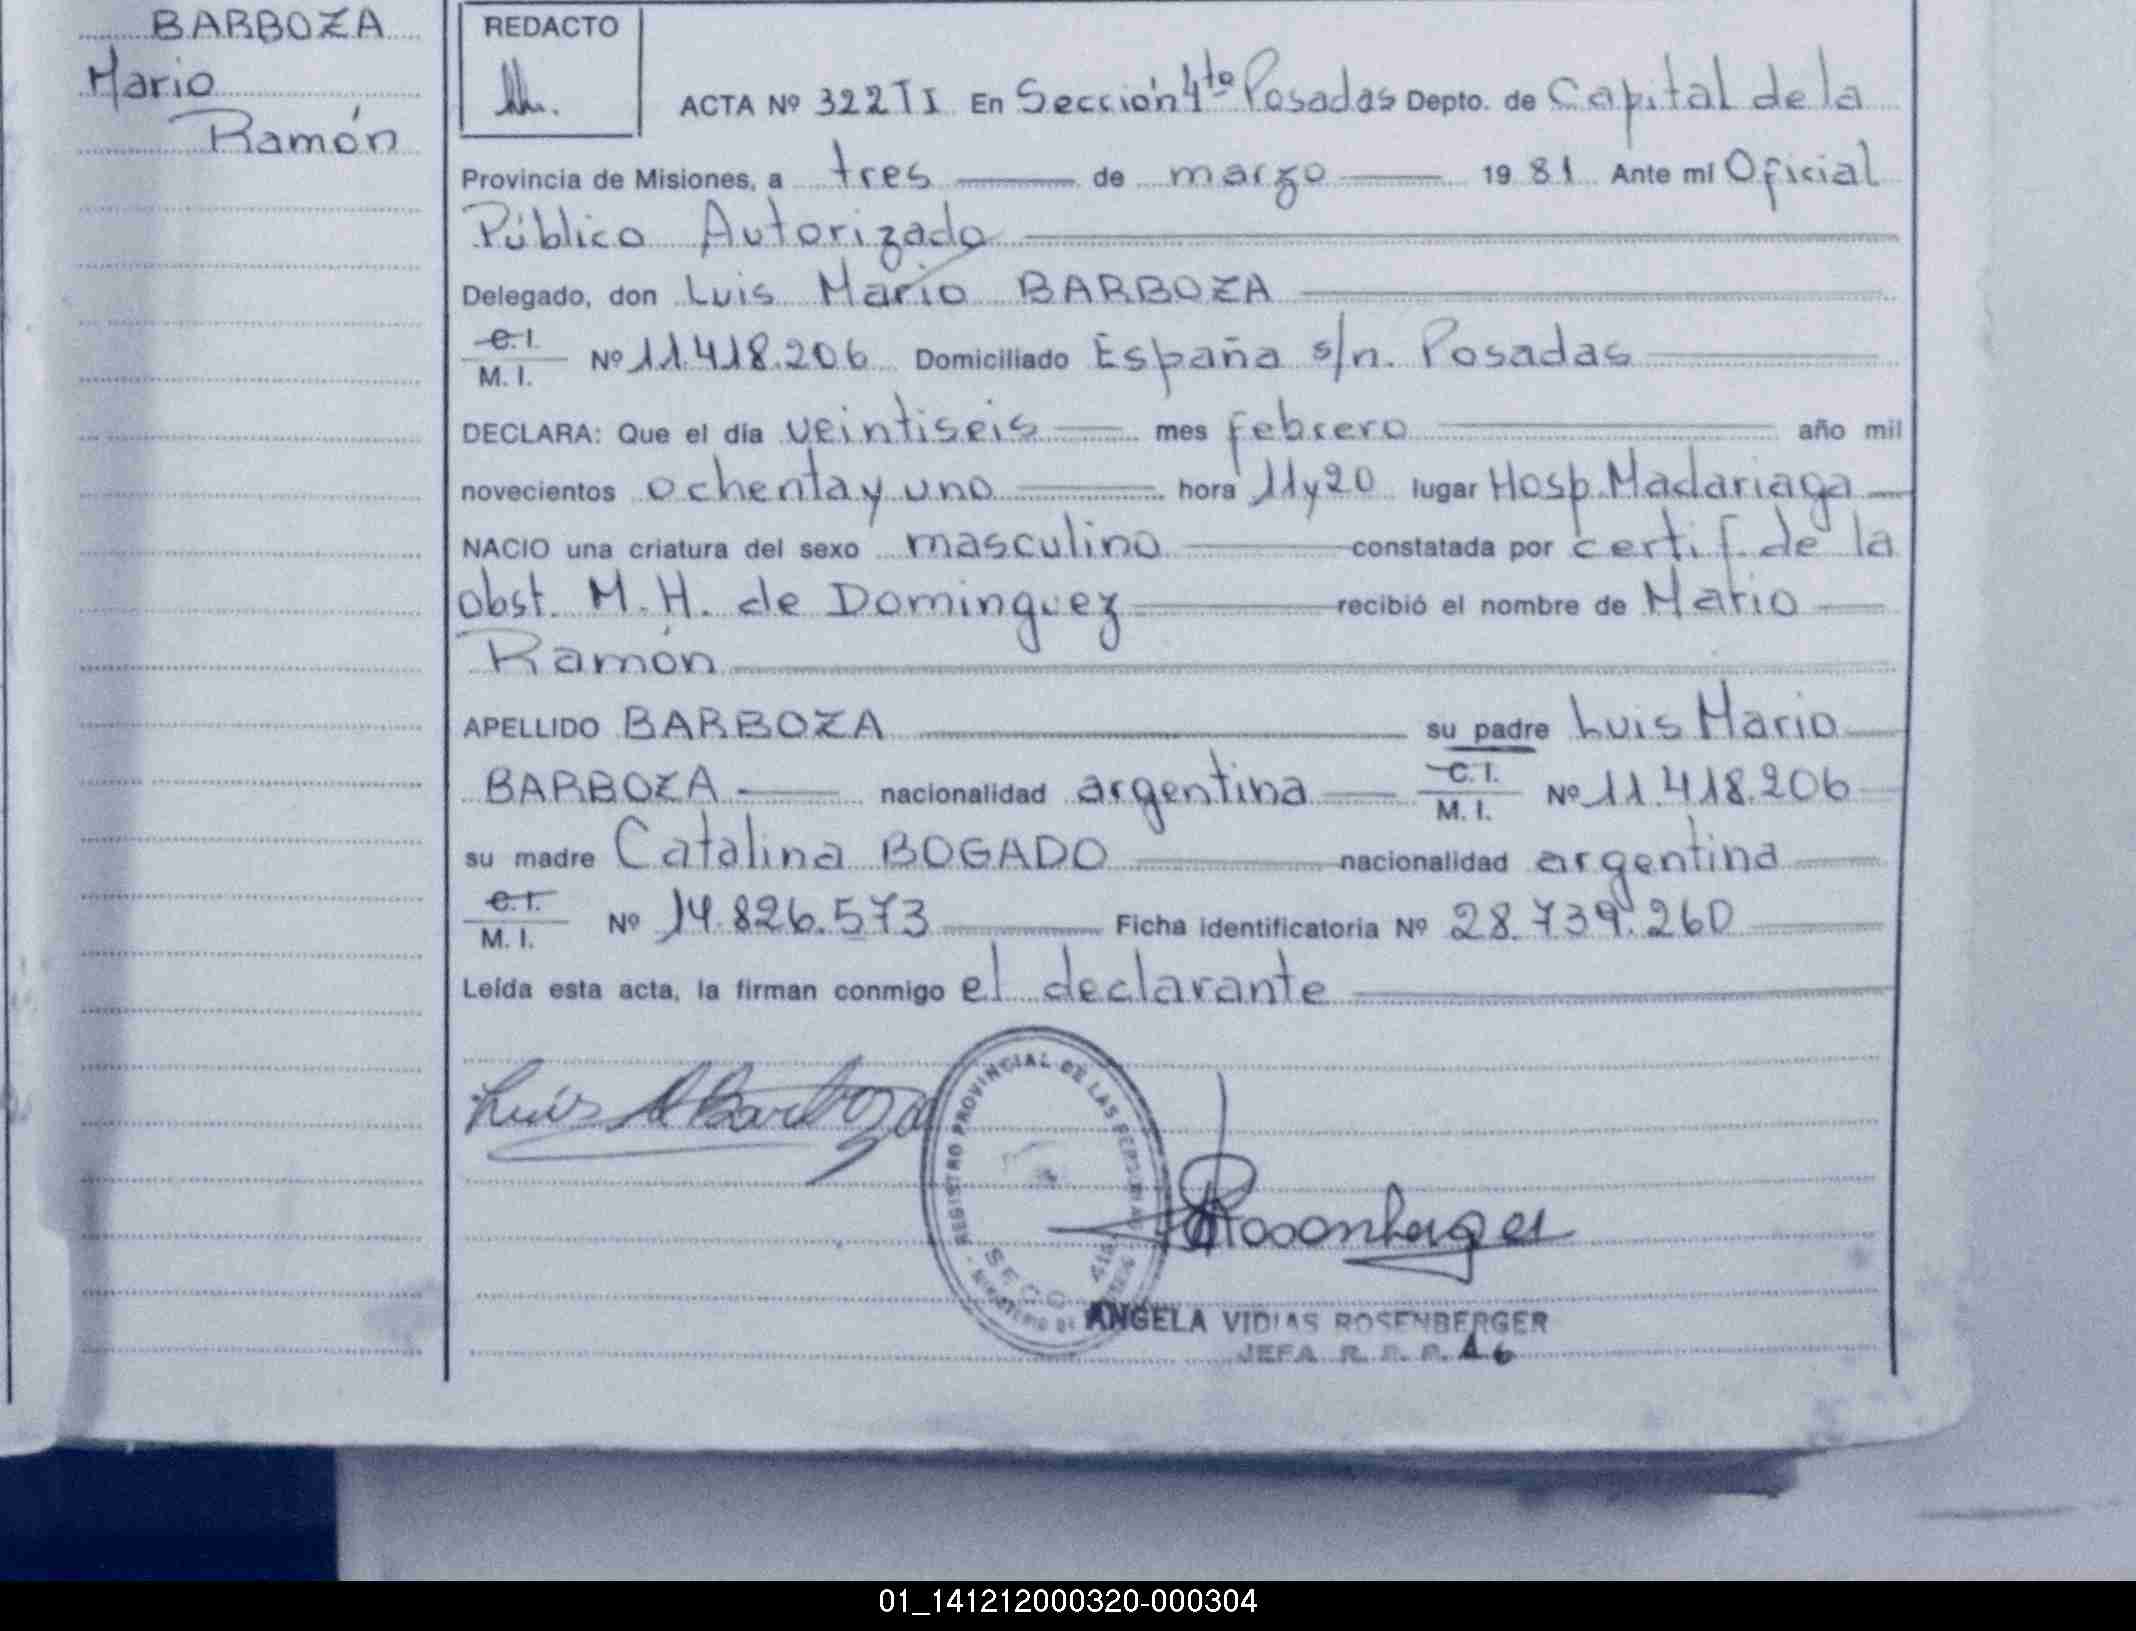 BARBOZA
Mario
Ramón
REDACTO
ACTA Nº 322TI En Sección 4ta Posadas Depto. de Capital de la
Provincia de Misiones, a tres de marzo 1981 Ante mí Oficial
Público Autorizado
Delegado, don Luis Mario BARBOZA
C.I.
M. I. Nº 11.418.206 Domiciliado España s/n. Posadas
DECLARA: Que el día veintiseis mes febrero año mil
novecientos ochenta y uno hora 11y20 lugar Hosp. Madariaga
NACIO una criatura del sexo masculino constatada por certif. de la
obst. M. H. de Dominguez recibió el nombre de Mario
Ramón
APELLIDO BARBOZA su padre Luis Mario
BARBOZA nacionalidad argentina C.I. M. I. Nº 11.418.206
su madre Catalina BOGADO nacionalidad argentina
C.I.
M. I. Nº 14.826.573 Ficha identificatoria Nº 28.739.260
Leída esta acta, la firman conmigo el declarante
Luis M Barboza
REGISTRO PROVINCIAL DE LAS PERSONAS
SECC 4ta
Rosenberger
ANGELA VIDIAS ROSENBERGER
JEFA R. P. P.
01_141212000320-000304